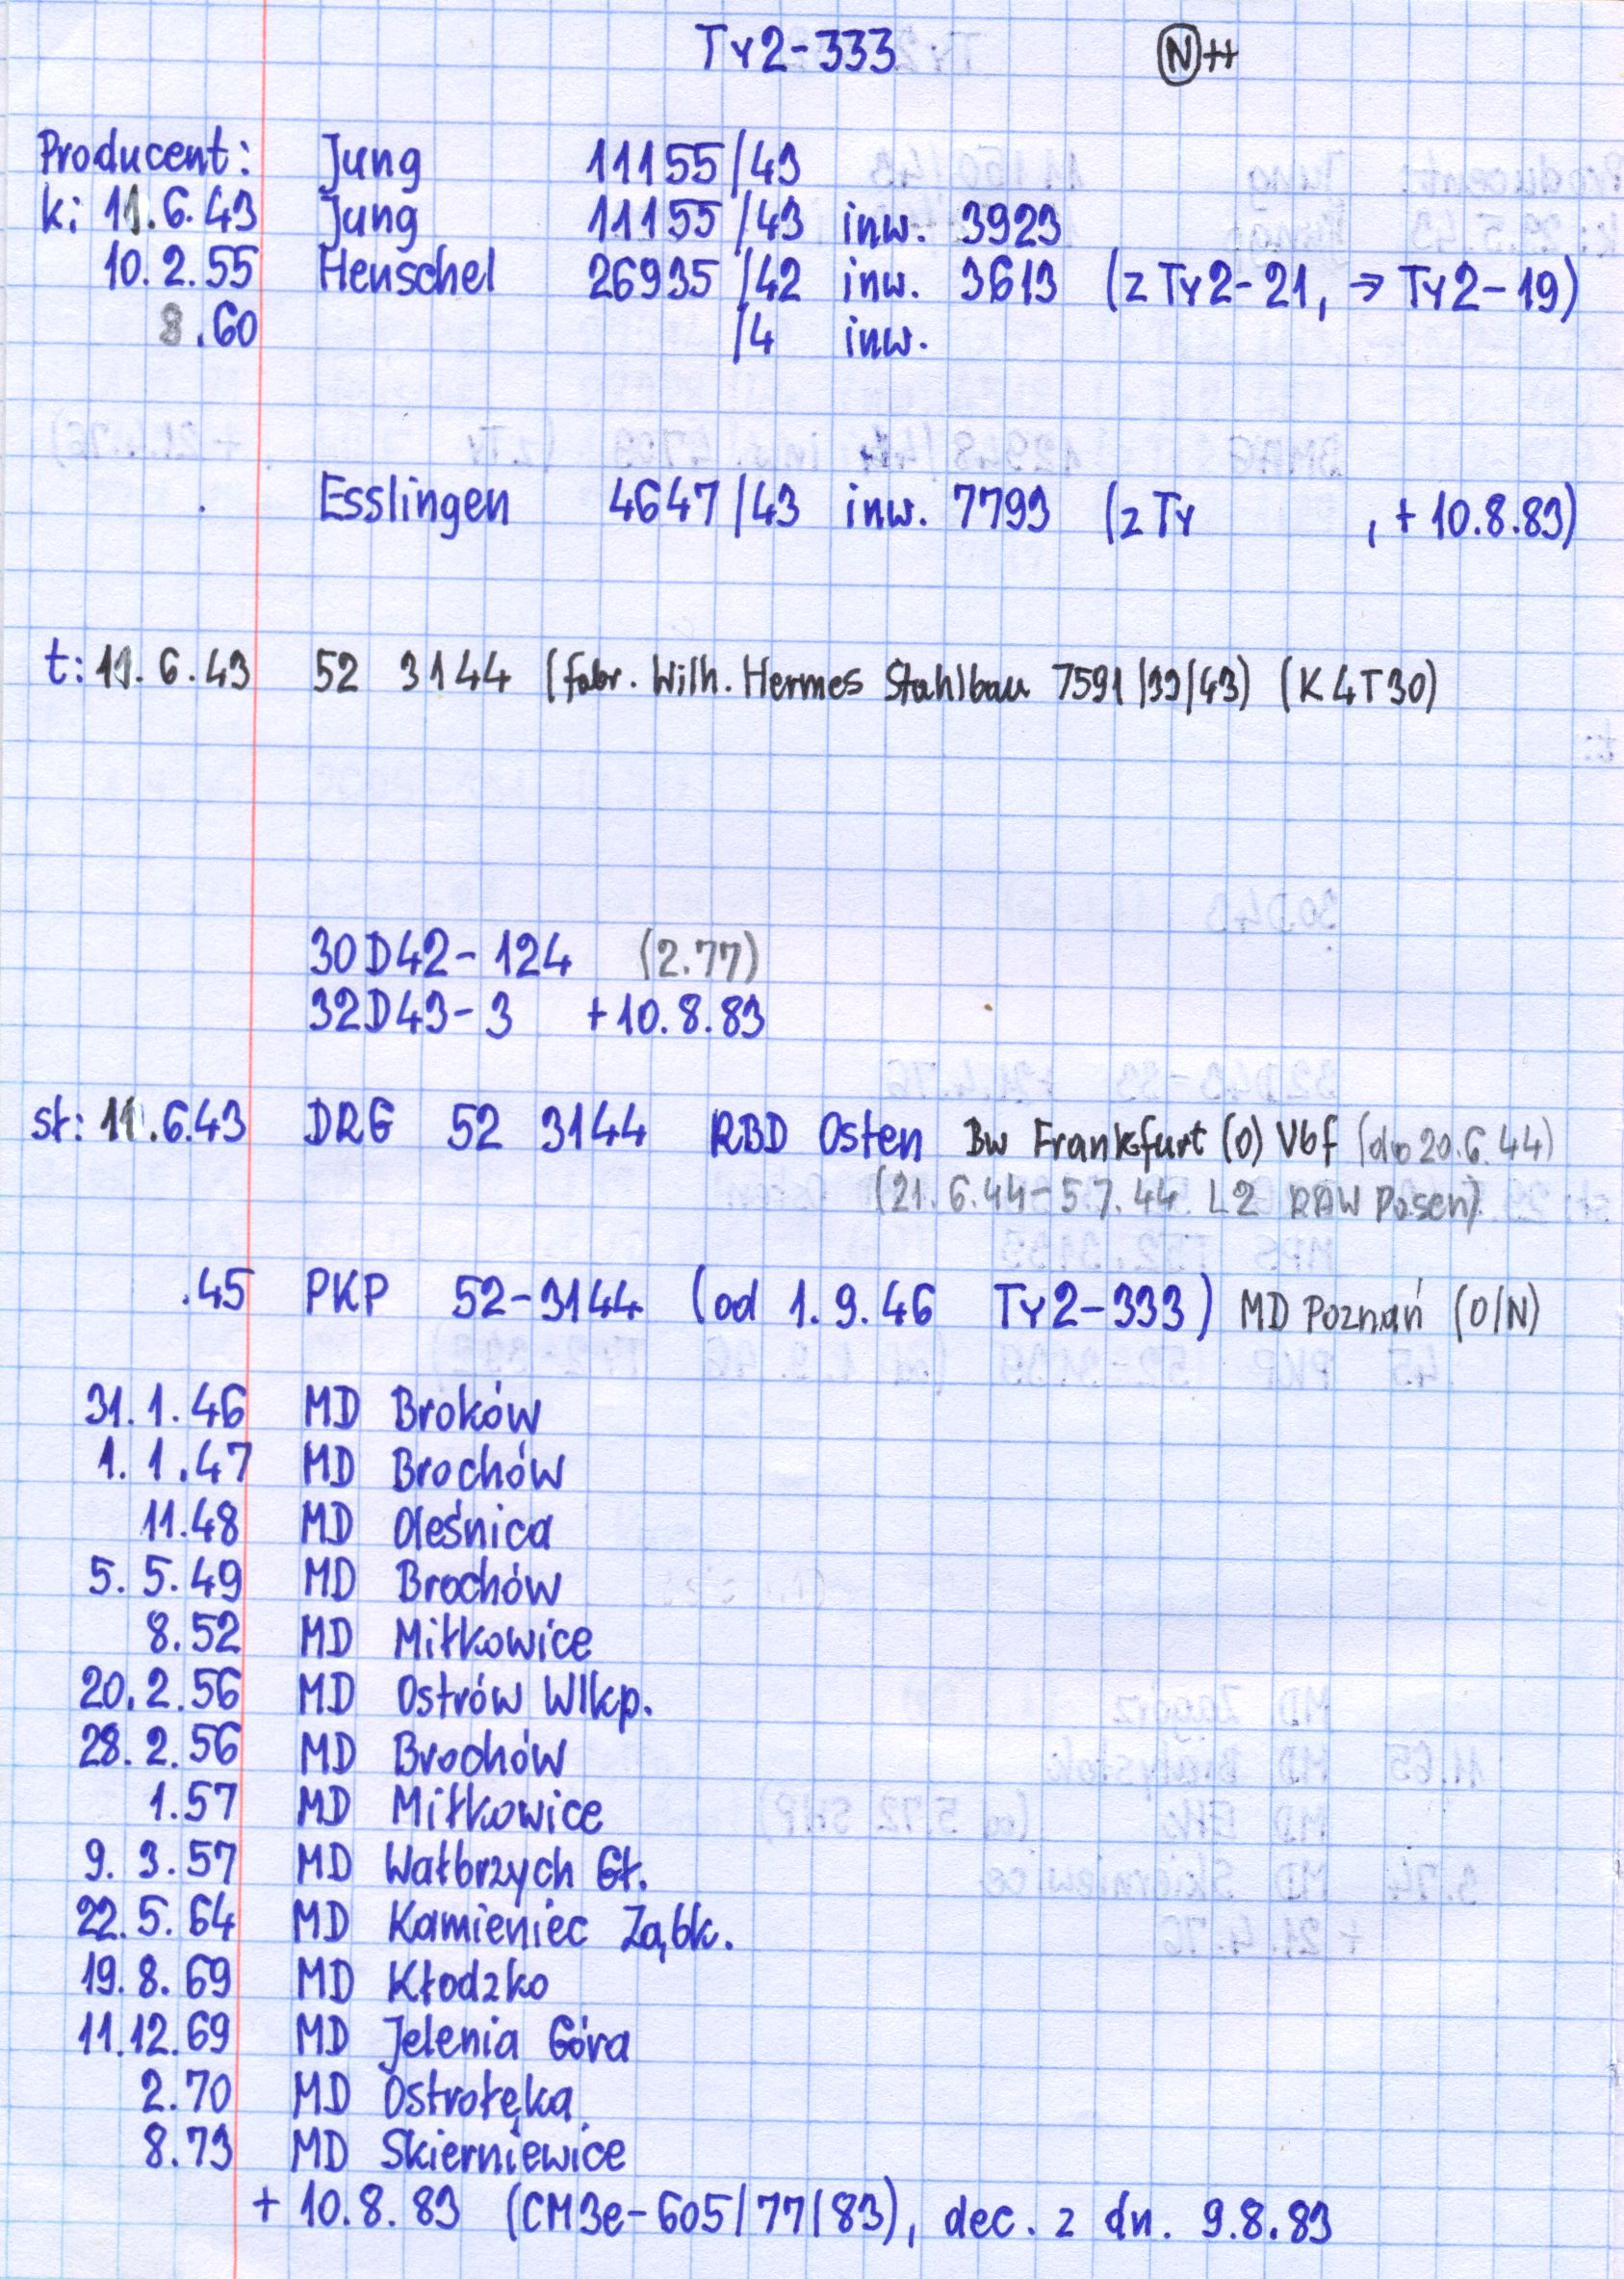 Ty2-333 (N)++
Producent: Jung 11155/43
k: 11.6.43 Jung 11155/43 inw. 3923
10.2.55 Henschel 26935/42 inw. 3613 (z Ty2-21, → Ty2-19)
8.60 /4 inw.
. Esslingen 4647/43 inw. 7793 (z Ty , + 10.8.83)
t: 11.6.43 52 3144 (fabr. Wilh. Hermes Stahlbau 7591/39/43) (K4T30)
30D42-124 (2.77)
32D43-3 +10.8.83
st: 11.6.43 DRG 52 3144 RBD Osten Bw Frankfurt (O) Vbf (do 20.6.44)
(21.6.44-5.7.44 L2 RAW Posen)
.45 PKP 52-3144 (od 1.9.46 Ty2-333) MD Poznań (O/N)
31.1.46 MD Broków
1.1.47 MD Brochów
11.48 MD Oleśnica
5.5.49 MD Brochów
8.52 MD Miłkowice
20.2.56 MD Ostrów Wlkp.
28.2.56 MD Brochów
1.57 MD Miłkowice
9.3.57 MD Wałbrzych Gł.
22.5.64 MD Kamieniec Ząbk.
19.8.69 MD Kłodzko
11.12.69 MD Jelenia Góra
2.70 MD Ostrołęka
8.73 MD Skierniewice
+ 10.8.83 (CM3e-605/77/83), dec. z dn. 9.8.83